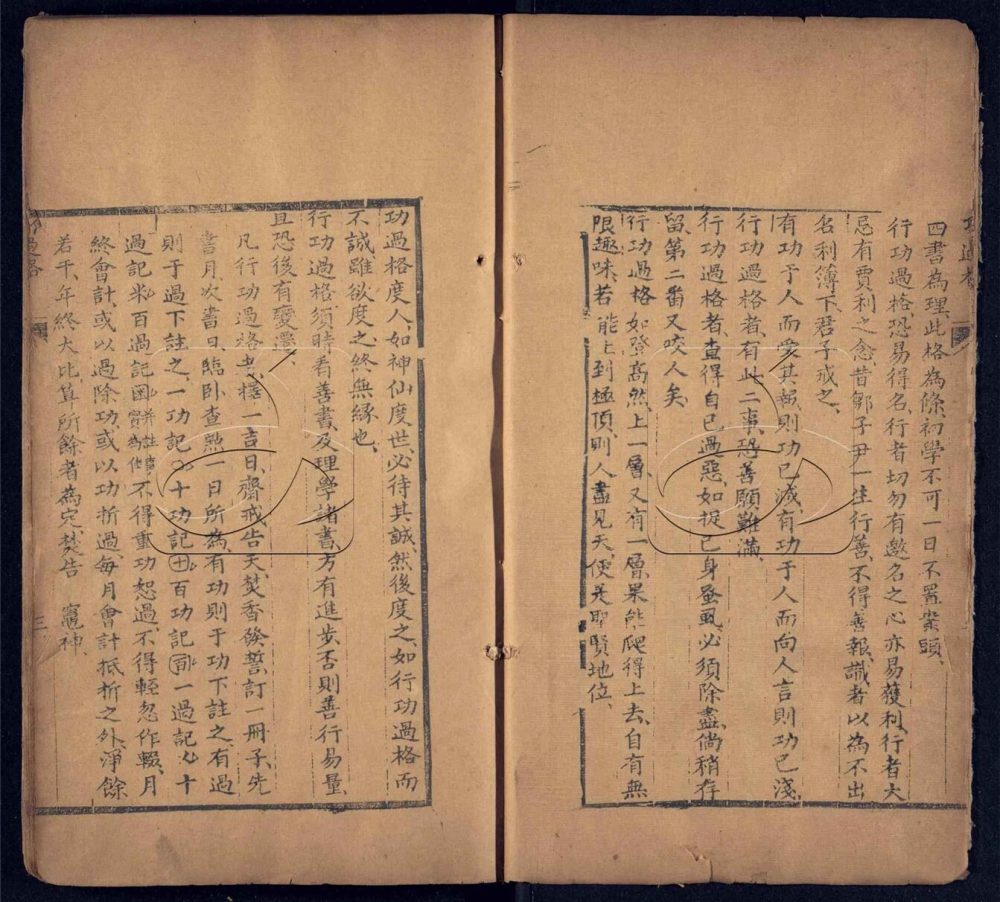 功過格
四書為理此格為條初學不可一日不置案頭
行功過格恐易得名行者切勿有邀名之心亦易獲利行者大
忌有賈利之念昔鄒子尹一生行善不得善報識者以為不出
名利簿下君子戒之
有功于人而受其報則功已滅有功于人而向人言則功已淺
行功過格者有此二事恐善願難滿
行功過格者查得自已過惡如捉已身蚤虱必須除盡倘稍存
留第二番又咬人矣
行功過格如登高然上一層又有一層果能爬得上去自有無
限趣味若能上到極頂則人盡見天便是聖賢地位
功過格度人如神仙度世必待其誠然後度之如行功過格而
不誠雖欲度之終無緣也
行功過格須時看善書及理學諸書方有進步否則善行易量
且恐後有變遷
凡行功過格者擇一吉日齋戒告天焚香發誓訂一冊子先
書月次書日臨卧查點一日所為有功則于功下註之有過
則于過下註之一功記○十功記十百功記百一過記十
過記米百過記不得重功恕過不得輕忽作輟月
終會計或以過除功或以功折過每月會計抵折之外淨餘
若干年終大比算所餘者為定焚告 竈神
功過格
三